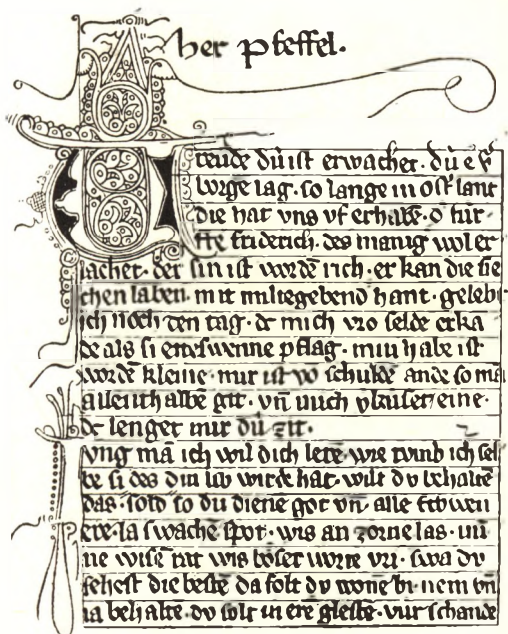 her pfeffel.
reude dú ist erwachet. dú e v̾
borge lag. so lange in ost̾ lant
die hat vns vf erhabē. d̾ fúr
ste friderich. des manig wol er
lachet. der sin ist wordē rich. er kan die sie
chen laben. mit miltegebend hant. gelebt
ich noch den tag. dc mich vro selde erka
de als si etteswenne pflag. min habe ist
wordē kleine. mir ist vō schuldē ande so mā
allenthalbē git. vn̄ mich v̾luset eine.
dc lenget mir dú zit.
vng mā ich wil dich lerē. wie tvmb ich sel
be si des din lib wirde hat. wilt dv behaltē
das. solt so du diene got vn̄ alle frowen
ere. la swache spot. wis an zorne las. nú
ne wisē rat wis bôser worte vri. swa dv
sehest die bestē da solt dv wonē bi. nem vn̄
na behalte. dv solt in ere gleste. vúr schande